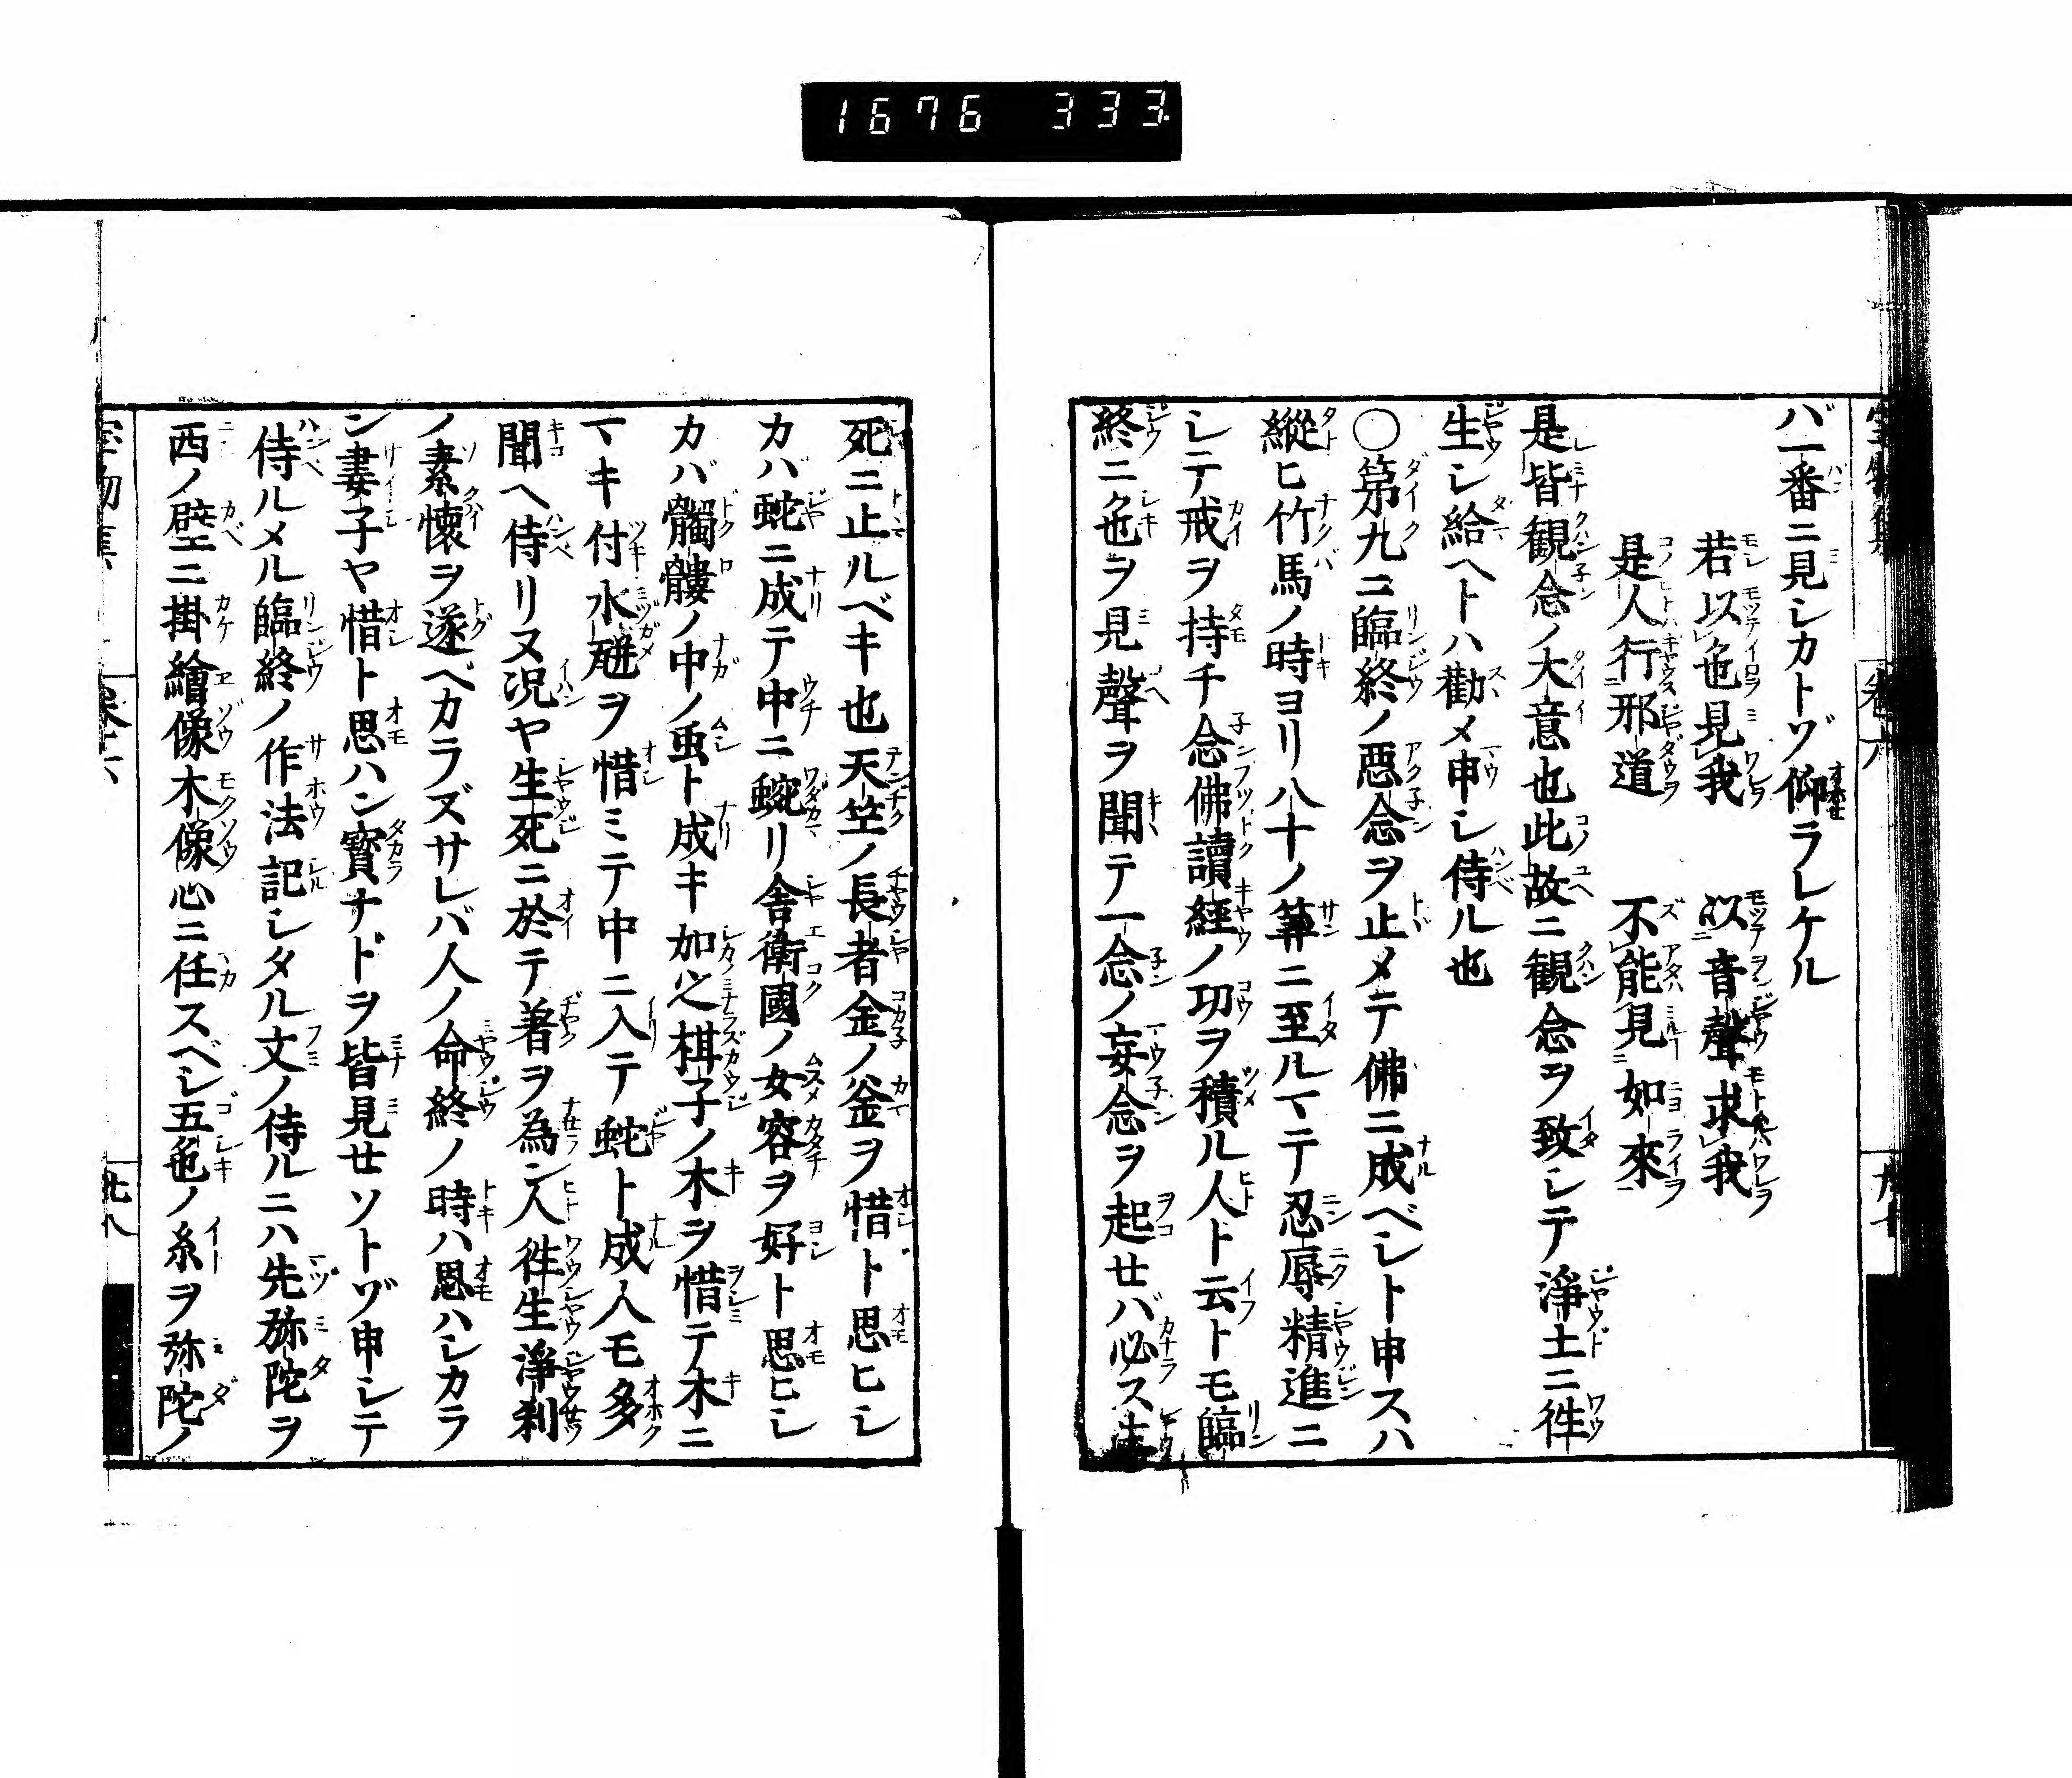 1676 333
バ一番ニ見シカトゾ仰ラレケル
若以色見我 以音聲求我
是人行邪道 不能見如來
是皆觀念ノ大意也此故ニ觀念ヲ致シテ淨土ニ徃
生シ給ヘトハ勸メ申シ侍ル也
○第九ニ臨終ノ惡念ヲ止メテ佛ニ成ベシト申スハ
縱ヒ竹馬ノ時ヨリ八十ノ算ニ至ルマテ忍辱精進ニ
シテ戒ヲ持チ念佛讀經ノ功ヲ積ル人ト云トモ臨
終ニ色ヲ見聲ヲ聞テ一念ノ妄念ヲ起セバ必ス生
死ニ止ルベキ也天竺ノ長者金ノ釜ヲ惜ト思ヒシ
カハ蛇ニ成テ中ニ蟠リ舍衛國ノ女容ヲ好ト思ヒシ
カバ髑髏ノ中ノ虫ト成キ加之梖子ノ木ヲ惜テ木ニ
マキ付水瓶ヲ惜ミテ中ニ入テ蛇ト成人モ多
聞ヘ侍リヌ况ヤ生死ニ於テ著ヲ為ン人徃生淨刹
ノ素懷ヲ遂ベカラズサレバ人ノ命終ノ時ハ思ハシカラ
ン妻子ヤ惜ト思ハン寳ナドヲ皆見セソトゾ申シテ
侍ルメル臨終ノ作法記シタル文ノ侍ルニハ先弥陀ヲ
西ノ壁ニ掛繪像木像心ニ任スベシ五色ノ糸ヲ弥陀ノ